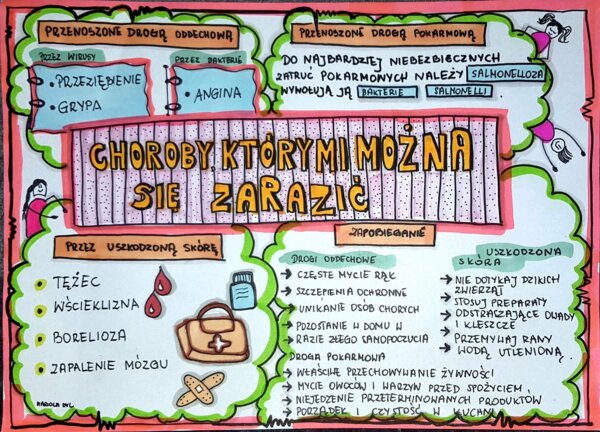 PRZENOSZONE DROGĄ ODDECHOWĄ
PRZEZ WIRUSY
• PRZEZIĘBIENIE
• GRYPA
PRZEZ BAKTERIE
• ANGINA
PRZENOSZONE DROGĄ POKARMOWĄ
DO NAJBARDZIEJ NIEBEZPIECZNYCH
ZATRUĆ POKARMOWYCH NALEŻY SALMONELLOZA
WYWOŁUJĄ JĄ BAKTERIE SALMONELLI
CHOROBY KTÓRYMI MOŻNA
SIĘ ZARAZIĆ
PRZEZ USZKODZONĄ SKÓRĘ
• TĘŻEC
• WŚCIEKLIZNA
• BORELIOZA
• ZAPALENIE MÓZGU
MARIOLA DYL
ZAPOBIEGANIE
DROGI ODDECHOWE
→ CZĘSTE MYCIE RĄK
→ SZCZEPIENIA OCHRONNE
→ UNIKANIE OSÓB CHORYCH
→ POZOSTANIE W DOMU W
→ RAZIE ZŁEGO SAMOPOCZUCIA
DROGA POKARMOWA
→ WŁAŚCIWE PRZECHOWYWANIE ŻYWNOŚCI
→ MYCIE OWOCÓW I WARZYW PRZED SPOŻYCIEM,
→ NIEJEDZENIE PRZETERMINOWANYCH PRODUKTÓW
→ PORZĄDEK I CZYSTOŚĆ W KUCHNI
USZKODZONA
SKÓRA
→ NIE DOTYKAJ DZIKICH
ZWIERZĄT
→ STOSUJ PREPARATY
→ ODSTRASZAJĄCE OWADY
I KLESZCZE
→ PRZEMYWAJ RANY
WODĄ UTLENIONĄ.